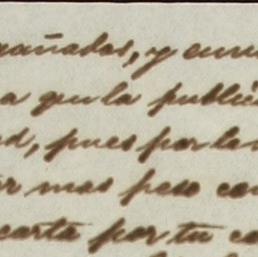 gañadas, y
a que la public
d, pues por la
r mas peso con
carta por tu c